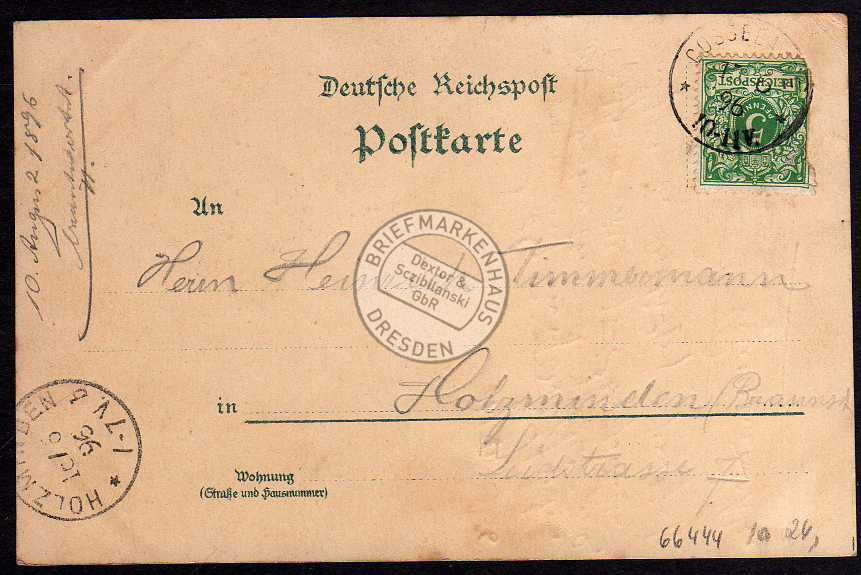 Deutsche Reichspost
Postkarte
An
Herrn Heinrich Timmermann
in Holzminden (Braunsch
Südstrasse
Wohnung
(Straße und Hausnummer)
10. August 1896
REICHSPOST
5
PFENNIG
96
HOLZMINDEN
10/8
96
7-8 V
BRIEFMARKENHAUS
Dextor &
Sczibilanski
GbR
DRESDEN
66444 10 24,